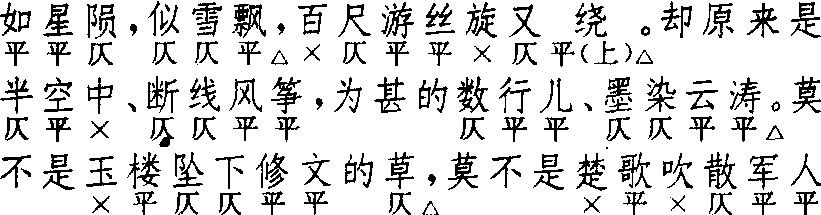 如星陨，似雪飘，百尺游丝旋又绕。却原来是
平平仄 仄仄平△ ×仄平平×仄平(上)△
半空中、断线风筝，为甚的数行儿、墨染云涛。莫
仄平× 仄仄平平 仄平平 仄仄平平△
不是玉楼坠下修文的草，莫不是楚歌吹散军人
×平仄仄平平 仄△ ×平×仄平平